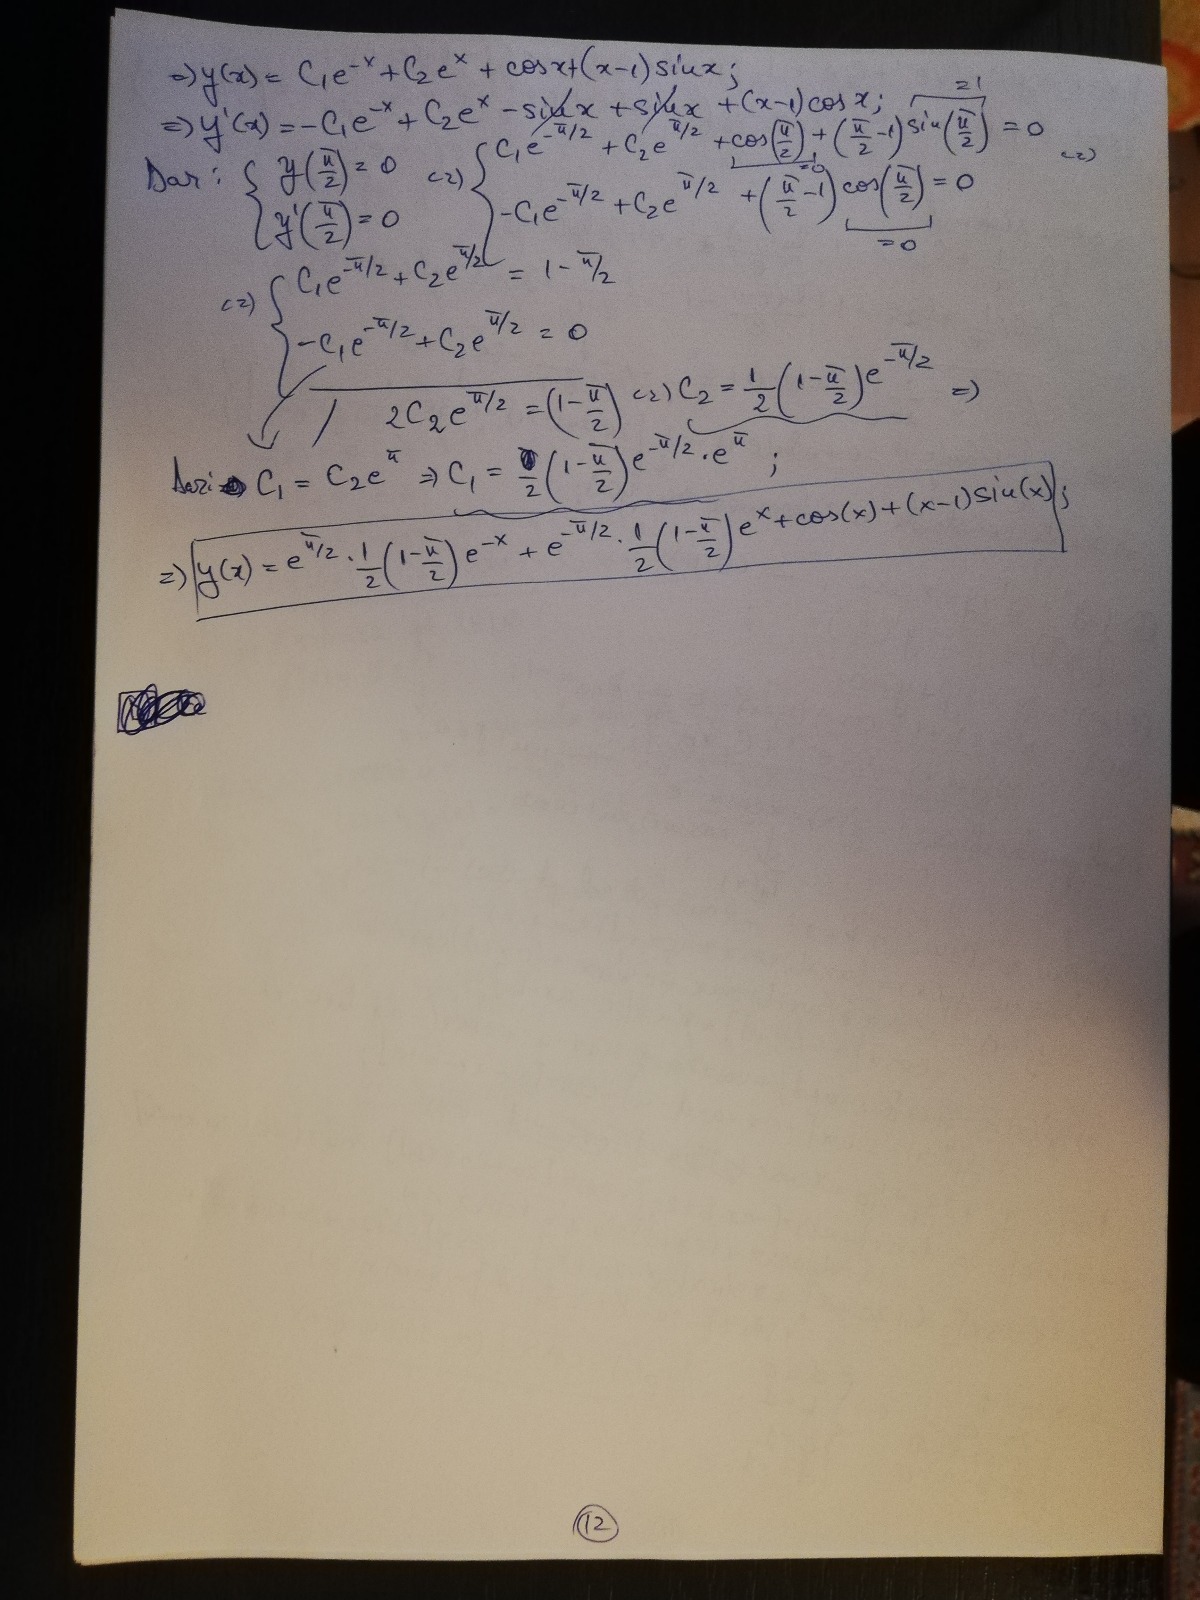 => y(x) = C₁e^{-x} + C₂e^{x} + cosx+(x-1) sinx;
=> y'(x) = -C₁e^{-x} + C₂e^{x} - sinx + sinx + (x-1)cosx;
Dar: { y(π/2) = 0 (=) { C₁e^{-π/2} + C₂e^{π/2} + cos(π/2) + (π/2 -1) sin(π/2) = 0 (=)
=0 =1
y'(π/2) = 0 -C₁e^{-π/2} + C₂e^{π/2} + (π/2 -1) cos(π/2) = 0
=0
(=) { C₁e^{-π/2} + C₂e^{π/2} = 1 - π/2
-C₁e^{-π/2} + C₂e^{π/2} = 0
/ 2C₂e^{π/2} = (1-π/2) (=) C₂ = 1/2 (1-π/2) e^{-π/2} =>
Deci C₁ = C₂e^{π} => C₁ = 1/2 (1-π/2) e^{-π/2}·e^{π} ;
=> y(x) = e^{π/2}·1/2 (1-π/2) e^{-x} + e^{-π/2}·1/2 (1-π/2) e^{x} + cos(x) + (x-1) sin(x);
12